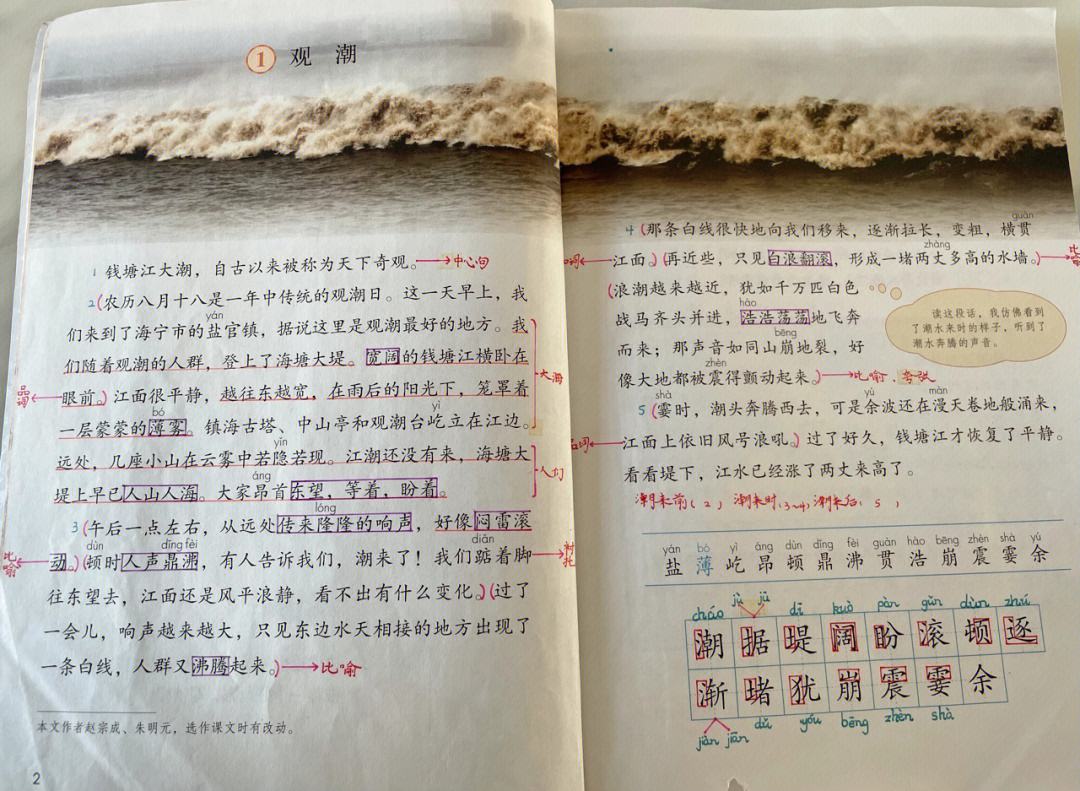 1 观 潮
1 钱塘江大潮，自古以来被称为天下奇观。→中心句
2(农历八月十八是一年中传统的观潮日。这一天早上，我
yán
们来到了海宁市的盐官镇，据说这里是观潮最好的地方。我
们随着观潮的人群，登上了海塘大堤。宽阔的钱塘江横卧在
大海
眼前。)江面很平静，越往东越宽，在雨后的阳光下，笼罩着
bó yì
一层蒙蒙的薄雾。镇海古塔、中山亭和观潮台屹立在江边。
yǐn
远处，几座小山在云雾中若隐若现。江潮还没有来，海塘大
人们
áng
堤上早已人山人海。大家昂首东望，等着，盼着。
lóng
3(午后一点左右，从远处传来隆隆的响声，好像闷雷滚
比喻
dùn dǐng fèi diǎn
动。)(顿时人声鼎沸，有人告诉我们，潮来了！我们踮着脚
衬托
往东望去，江面还是风平浪静，看不出有什么变化。)(过了
一会儿，响声越来越大，只见东边水天相接的地方出现了
一条白线，人群又沸腾起来。)→比喻
本文作者赵宗成、朱明元，选作课文时有改动。
2
guàn
4(那条白线很快地向我们移来，逐渐拉长，变粗，横贯
zhàng
江面。)(再近些，只见白浪翻滚，形成一堵两丈多高的水墙。)→
(浪潮越来越近，犹如千万匹白色
hào
战马齐头并进，浩浩荡荡地飞奔
bēng
而来；那声音如同山崩地裂，好
zhèn
像大地都被震得颤动起来。)→比喻
读这段话，我仿佛看到
了潮水来时的样子，听到了
潮水奔腾的声音。
shà yú màn
5(霎时，潮头奔腾西去，可是余波还在漫天卷地般涌来，
江面上依旧风号浪吼。)过了好久，钱塘江才恢复了平静。
看看堤下，江水已经涨了两丈来高了。
潮来前(2) 潮来时(3~4) 潮来后(5)
yán bó yì áng dùn dǐng fèi guàn hào bēng zhèn shà yú
盐 薄 屹 昂 顿 鼎 沸 贯 浩 崩 震 霎 余
cháo jù jū dī kuò pàn gǔn dùn zhú
潮 据 堤 阔 盼 滚 顿 逐
渐 堵 犹 崩 震 霎 余
jiàn jiān dǔ yóu bēng zhèn shà